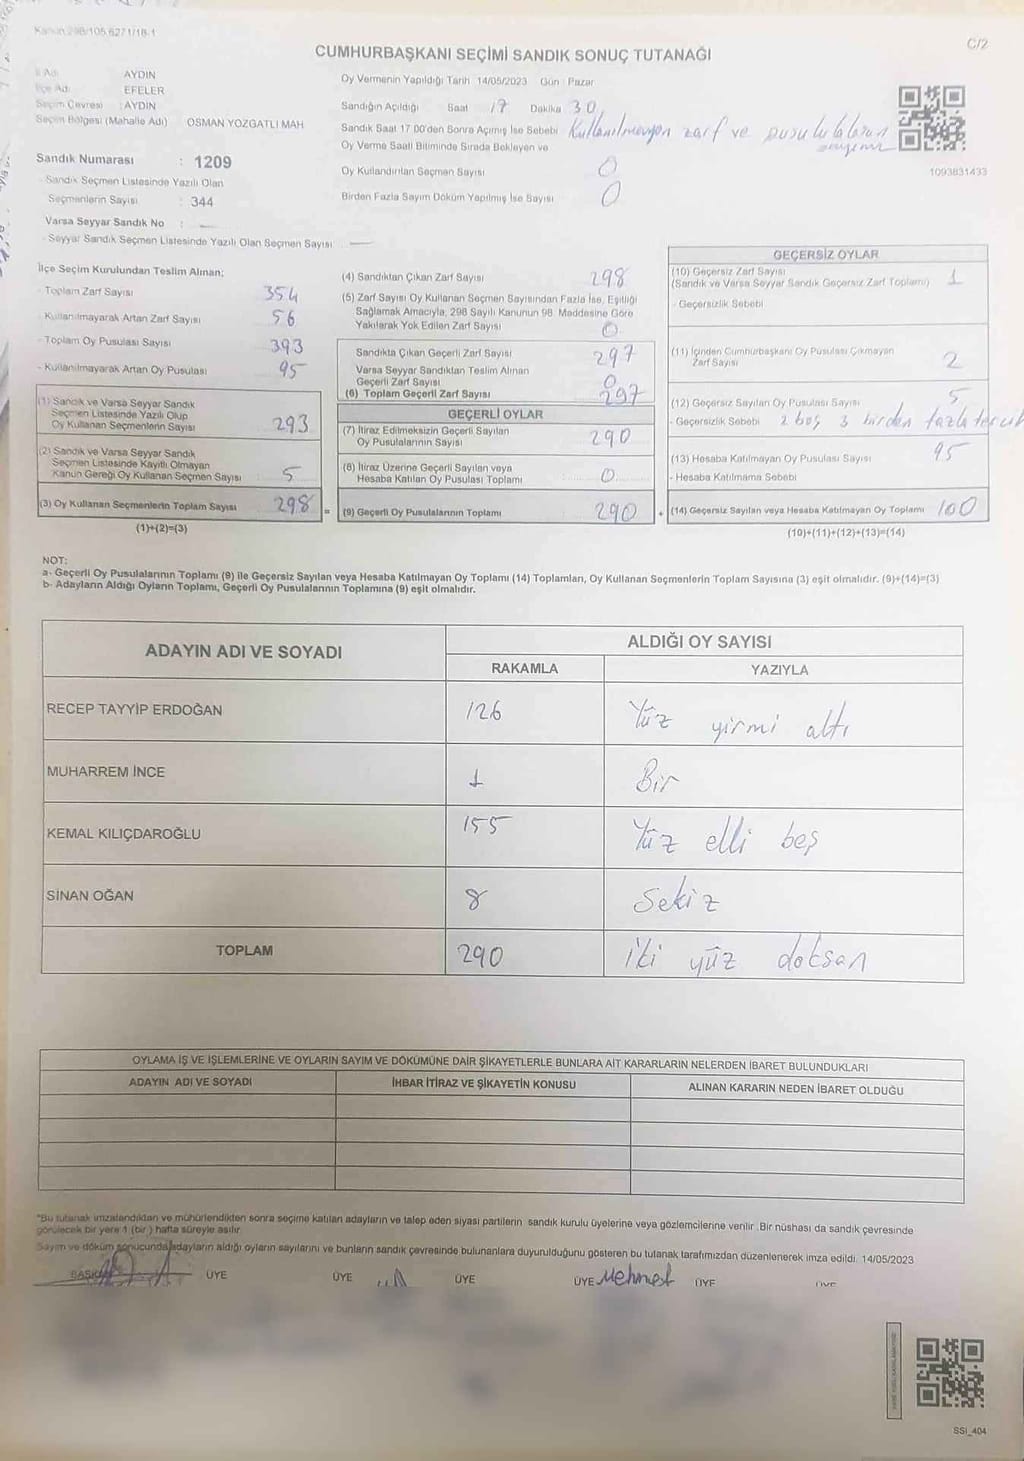 Kanun 298/105.6271/18-1
C/2
CUMHURBAŞKANI SEÇİMİ SANDIK SONUÇ TUTANAĞI
İl Adı AYDIN
İlçe Adı EFELER
Seçim Çevresi : AYDIN
Seçim Bölgesi (Mahalle Adı) OSMAN YOZGATLI MAH
Sandık Numarası : 1209
- Sandık Seçmen Listesinde Yazılı Olan
Seçmenlerin Sayısı : 344
Varsa Seyyar Sandık No : —
- Seyyar Sandık Seçmen Listesinde Yazılı Olan Seçmen Sayısı : —
Oy Vermenin Yapıldığı Tarih 14/05/2023 Gün : Pazar
Sandığın Açıldığı Saat 17 Dakika 30
Sandık Saat 17:00'den Sonra Açmış İse Sebebi Kullanılmayan zarf ve pusulaların
Oy Verme Saati Bitiminde Sırada Bekleyen ve
Oy Kullandırılan Seçmen Sayısı 0
Birden Fazla Sayım Döküm Yapılmış İse Sayısı 0
1093831433
İlçe Seçim Kurulundan Teslim Alınan;
- Toplam Zarf Sayısı 354
- Kullanılmayarak Artan Zarf Sayısı 56
- Toplam Oy Pusulası Sayısı 393
- Kullanılmayarak Artan Oy Pusulası 95
(1) Sandık ve Varsa Seyyar Sandık
Seçmen Listesinde Yazılı Olup
Oy Kullanan Seçmenlerin Sayısı 293
(2) Sandık ve Varsa Seyyar Sandık
Seçmen Listesinde Kayıtlı Olmayan
Kanun Gereği Oy Kullanan Seçmen Sayısı 5
(3) Oy Kullanan Seçmenlerin Toplam Sayısı 298 =
(1)+(2)=(3)
(4) Sandıktan Çıkan Zarf Sayısı 298
(5) Zarf Sayısı Oy Kullanan Seçmen Sayısından Fazla İse, Eşitliği
Sağlamak Amacıyla, 298 Sayılı Kanunun 98. Maddesine Göre
Yakılarak Yok Edilen Zarf Sayısı 0
Sandıkta Çıkan Geçerli Zarf Sayısı 297
Varsa Seyyar Sandıktan Teslim Alınan
Geçerli Zarf Sayısı 0
(6) Toplam Geçerli Zarf Sayısı 297
GEÇERLİ OYLAR
(7) İtiraz Edilmeksizin Geçerli Sayılan
Oy Pusulalarının Sayısı 290
(8) İtiraz Üzerine Geçerli Sayılan veya
Hesaba Katılan Oy Pusulası Toplamı 0
(9) Geçerli Oy Pusulalarının Toplamı 290 +
GEÇERSİZ OYLAR
(10) Geçersiz Zarf Sayısı
(Sandık ve Varsa Seyyar Sandık Geçersiz Zarf Toplamı) 1
- Geçersizlik Sebebi
(11) İçinden Cumhurbaşkanı Oy Pusulası Çıkmayan
Zarf Sayısı 2
(12) Geçersiz Sayılan Oy Pusulası Sayısı 5
- Geçersizlik Sebebi 2 boş 3 birden fazla tercih
(13) Hesaba Katılmayan Oy Pusulası Sayısı 95
- Hesaba Katılmama Sebebi
(14) Geçersiz Sayılan veya Hesaba Katılmayan Oy Toplamı 100
(10)+(11)+(12)+(13)=(14)
NOT:
a- Geçerli Oy Pusulalarının Toplamı (9) ile Geçersiz Sayılan veya Hesaba Katılmayan Oy Toplamı (14) Toplamları, Oy Kullanan Seçmenlerin Toplam Sayısına (3) eşit olmalıdır. (9)+(14)=(3)
b- Adayların Aldığı Oyların Toplamı, Geçerli Oy Pusulalarının Toplamına (9) eşit olmalıdır.
ADAYIN ADI VE SOYADI
ALDIĞI OY SAYISI
RAKAMLA YAZIYLA
RECEP TAYYİP ERDOĞAN 126 Yüz yirmi altı
MUHARREM İNCE 1 Bir
KEMAL KILIÇDAROĞLU 155 Yüz elli beş
SİNAN OĞAN 8 Sekiz
TOPLAM 290 iki yüz doksan
OYLAMA İŞ VE İŞLEMLERİNE VE OYLARIN SAYIM VE DÖKÜMÜNE DAİR ŞİKAYETLERLE BUNLARA AİT KARARLARIN NELERDEN İBARET BULUNDUKLARI
ADAYIN ADI VE SOYADI İHBAR İTİRAZ VE ŞİKAYETİN KONUSU ALINAN KARARIN NEDEN İBARET OLDUĞU
"Bu tutanak imzalandıktan ve mühürlendikten sonra seçime katılan adayların ve talep eden siyasi partilerin sandık kurulu üyelerine veya gözlemcilerine verilir. Bir nüshası da sandık çevresinde
görülecek bir yere 1 (bir) hafta süreyle asılır.
Sayım ve döküm sonucunda adayların aldığı oyların sayılarını ve bunların sandık çevresinde bulunanlara duyurulduğunu gösteren bu tutanak tarafımızdan düzenlenerek imza edildi. 14/05/2023
BAŞKAN ÜYE ÜYE ÜYE ÜYE Mehmet ÜYE ÜYE
SSI_404